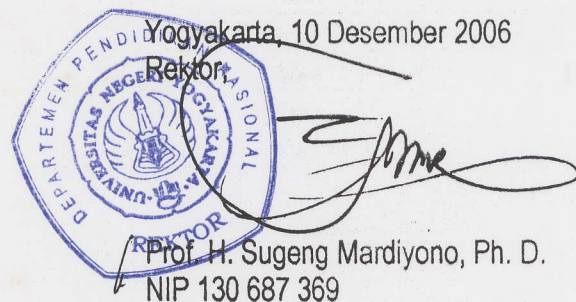 Yogyakarta, 10 Desember 2006
Rektor,
DEPARTEMEN PENDIDIKAN NASIONAL
UNIVERSITAS NEGERI YOGYAKARTA
REKTOR
Prof. H. Sugeng Mardiyono, Ph. D.
NIP 130 687 369